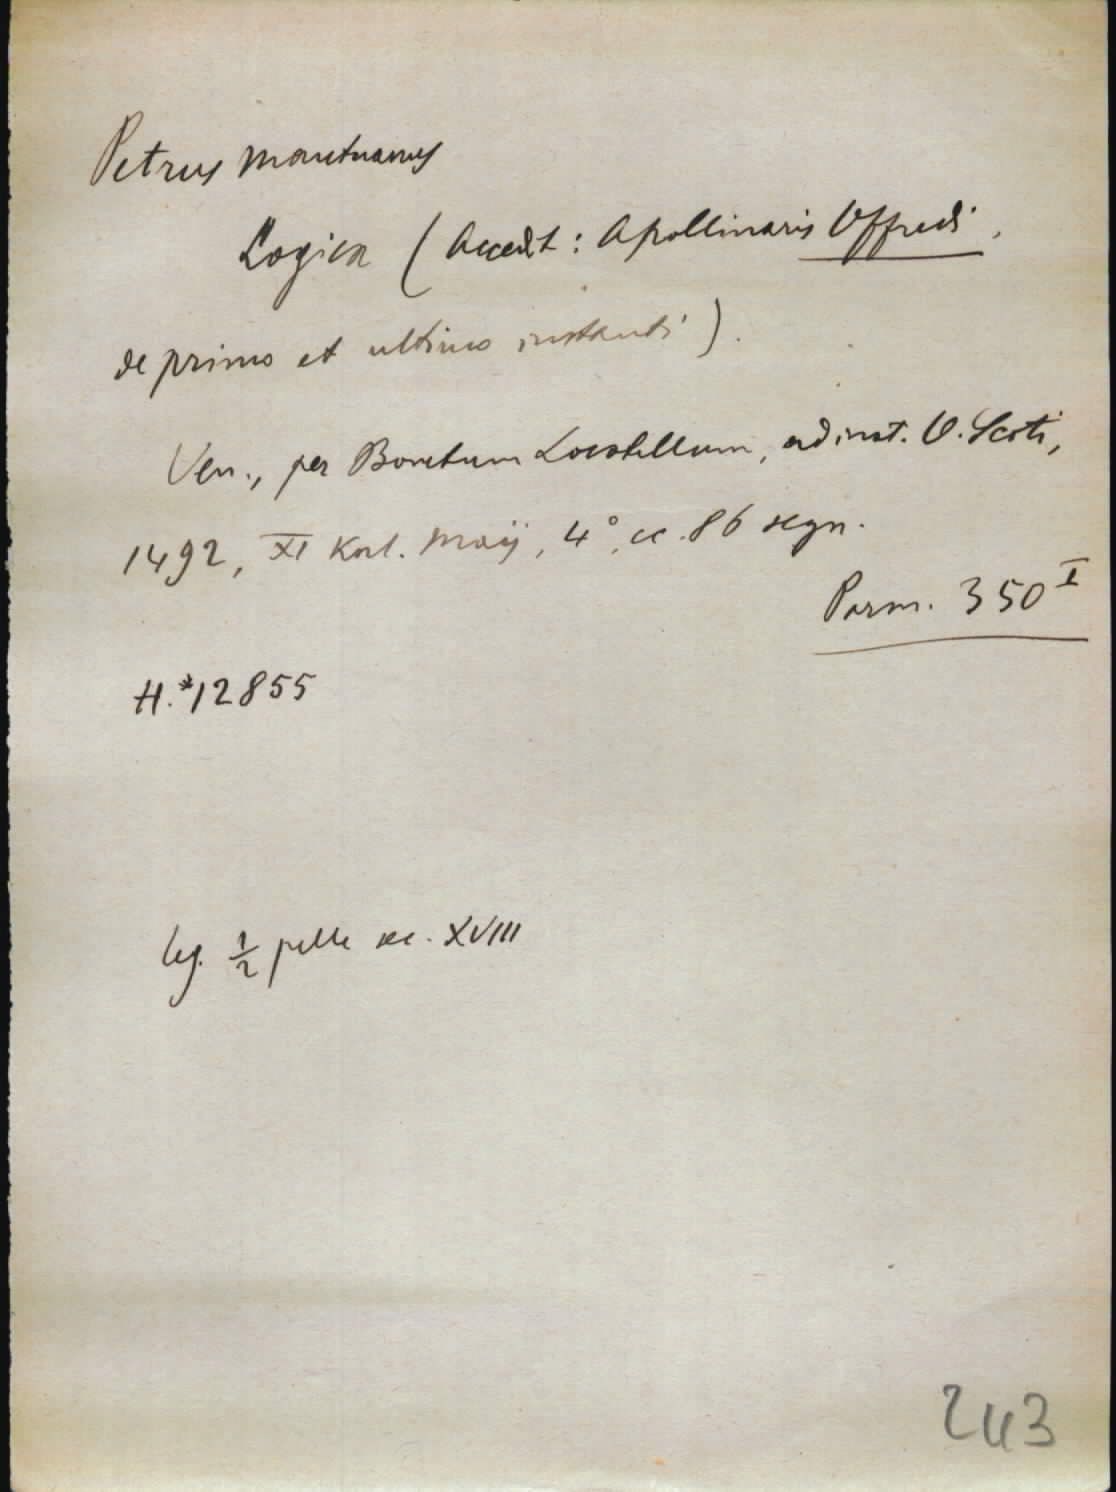 Petrus Mantuanus
Logica (Accedit: Apollinaris Offredi,
de primo et ultimo instanti).
Ven., per Bonetum Locatellum, ad inst. O. Scoti,
1492, XI Kal. Maij, 4°, cc. 86 segn.
Parm. 350 I
H.*12855
leg. 1/2 pelle sec. XVIII
243